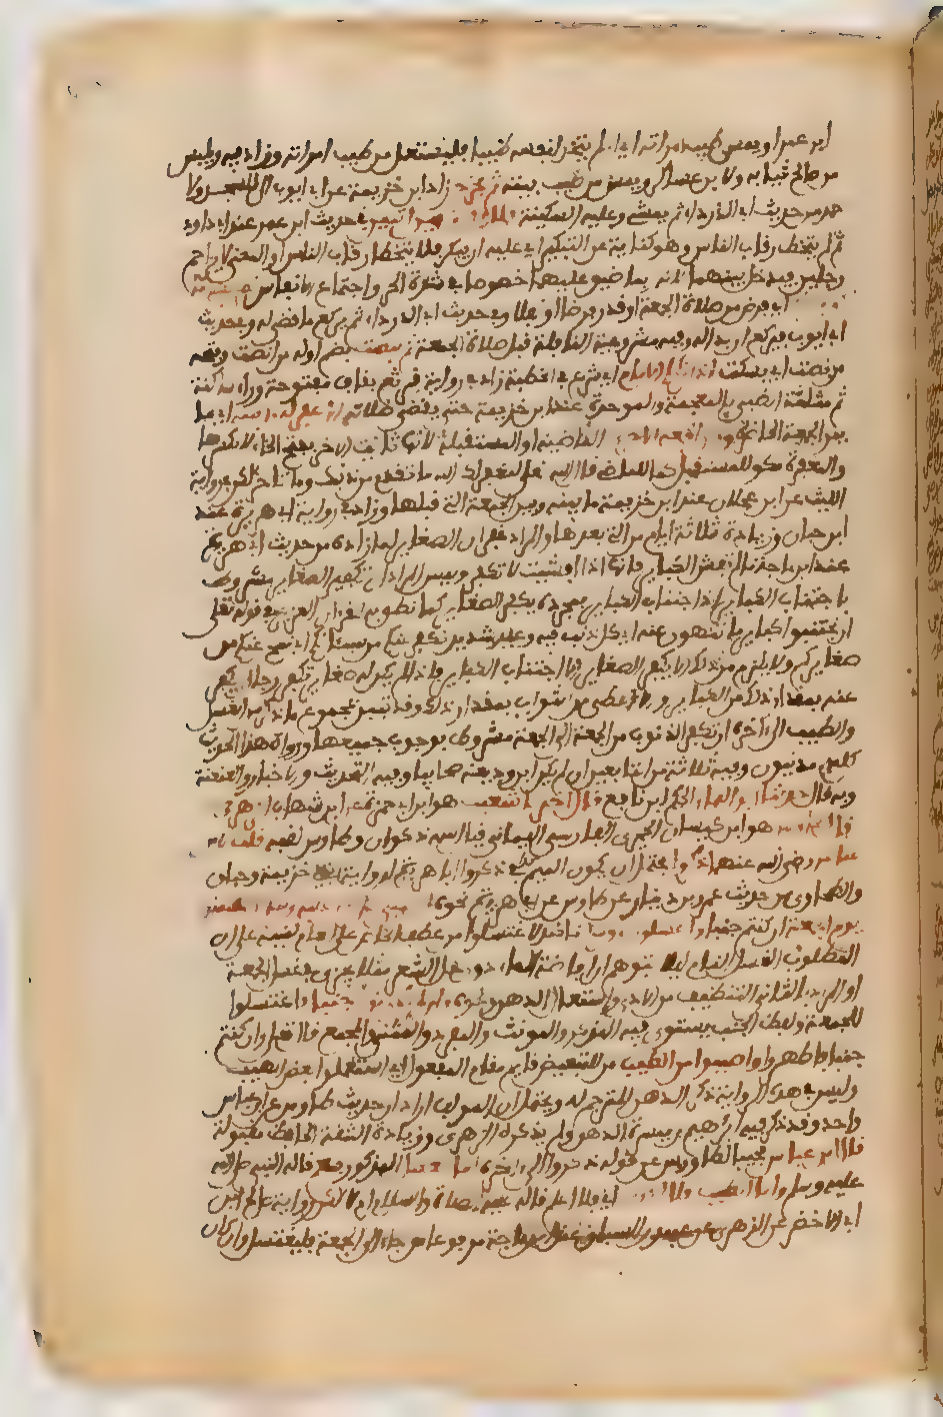 ابن عمر او يمس من طيب امراته اي ان لم يتخذ لنفسه طيبا فليستعمل من طيب امراته وزاد فيه ويلبس
من صالح ثيابه ولابن عساكر ويمس من طيب بيته ثم يخرج زاد ابن خزيمة عن ابي ايوب الى المسجد ولا
حمد من حديث ابي الدرداء ثم يمشي وعليه السكينة فلا يفرق بين اثنين في حديث ابن عمر عند ابي داود
ثم لم يتخط رقاب الناس وهو كناية عن التبكير اي عليه ان يبكر فلا يتخطى رقاب الناس او المعنى لا يزاحم
رجلين فيدخل بينهما لانه ربما ضيق عليهما خصوصا في شدة الحر واجتماع الانفاس
اي فرض من صلاة الجمعة او قدر فرضا او نفلا وفي حديث ابي الدرداء ثم يركع ما قضي له وفي حديث
ابي ايوب فيركع ان بدا له وفيه مشروعية النافلة قبل صلاة الجمعة ثم ينصت بضم اوله من انصت وفتحه
من نصت اي يسكت اذا تكلم الامام اي شرع في الخطبة زاد في رواية قرثع بقاف مفتوحة وراء ساكنة
ثم مثلثة الضبي بالمعجمة والموحدة عند ابن خزيمة حتى يقضي صلاته الا غفر له ما بينه اي ما
بين الجمعة الحاضرة وبين الجمعة الاخرى الماضية او المستقبلة لانها تانيث الاخر بفتح الخاء لا بكسرها
والمغفرة تكون للمستقبل كما للماضي قال الله تعالى ليغفر لك الله ما تقدم من ذنبك وما تاخر لكن في رواية
الليث عن ابن عجلان عند ابن خزيمة ما بينه وبين الجمعة التي قبلها وزاد في رواية ابي هريرة عند
ابن حبان وزيادة ثلاثة ايام من التي بعدها والمراد غفران الصغاير لما زاده من حديث ابي هريرة
عند ابن ماجة ما لم تغش الكباير فانها اذا غشيت لا تكفر وليس المراد ان تكفير الصغاير مشروط
باجتناب الكباير اذ اجتناب الكباير بمجرده يكفر الصغاير كما نطق به القران العزيز في قوله تعالى
ان تجتنبوا كباير ما تنهون عنه اي كل ذنب فيه وعيد شديد نكفر عنكم من سيئاتكم اي نمح عنكم
صغايركم ولا يلزم من ذلك ان لا يكفر الصغاير الا اجتناب الكباير فاذا لم يكن له صغاير تكفر رجا ان يكفر
عنه بمقدار ذلك من الكباير والا اعطي من الثواب بمقدار ذلك وقد تبين بمجموع ما ذكر من الغسل
والطيب الى اخره ان تكفير الذنوب من الجمعة الى الجمعة مشروط بوجود جميعها ورواة هذا الحديث
كلهم مدنيون وفيه ثلاثة من التابعين ان لم يكن ابن وديعة صحابيا وفيه التحديث والاخبار والعنعنة
وبه قال حدثنا ابو اليمان الحكم ابن نافع قال اخبرنا شعيب هو ابن ابي حمزة عن ابن شهاب الزهري
قال طاوس هو ابن كيسان الحميري الفارسي اليماني قيل اسمه ذكوان وطاوس لقبه قلت لابن
عباس رضي الله عنهما ذكروا يحتمل ان يكون المبهم في ذكروا ابا هريرة لرواية ابن خزيمة وحبان
والطحاوي من حديث عمرو بن دينار عن طاوس عن ابي هريرة نحوه ان النبي صلى الله عليه وسلم قال اغتسلوا
يوم الجمعة ان كنتم جنبا واغسلوا رءوسكم تاكيد لاغتسلوا من عطف الخاص على العام لينبه على ان
المطلوب الغسل التام ليلا يتوهم ان افاضة الماء دون حل الشعر مثلا يجزي في غسل الجمعة
او المراد بالثاني التنظيف من الاذى واستعمال الدهن ونحوه وان لم تكونوا جنبا فاغتسلوا
للجمعة ولفظ الجنب يستوي فيه المذكر والمونث والمفرد والمثنى والجمع قال تعالى وان كنتم
جنبا فاطهروا واصيبوا من الطيب من للتبعيض قايم مقام المفعول اي استعملوا بعض الطيب
وليس في هذه الرواية ذكر الدهن المترجم له ويحتمل ان المولف اراد ان حديث طاوس عن ابن عباس
واحد وقد ذكر فيه ابراهيم بن ميسرة الدهن ولم يذكره الزهري وزيادة الثقة الحافظ مقبولة
قال ابن عباس مجيبا لطاوس عن قوله ذكروا الى اخره اما الغسل المذكور فنعم قاله النبي صلى الله
عليه وسلم واما الطيب فلا ادري اي فلا اعلم قاله عليه الصلاة والسلام ام لا لكن رواية صالح بن
ابي الاخضر عن الزهري عن عبيد بن السباق عند ابن ماجة مرفوعا من جاء الى الجمعة فليغتسل وان كان